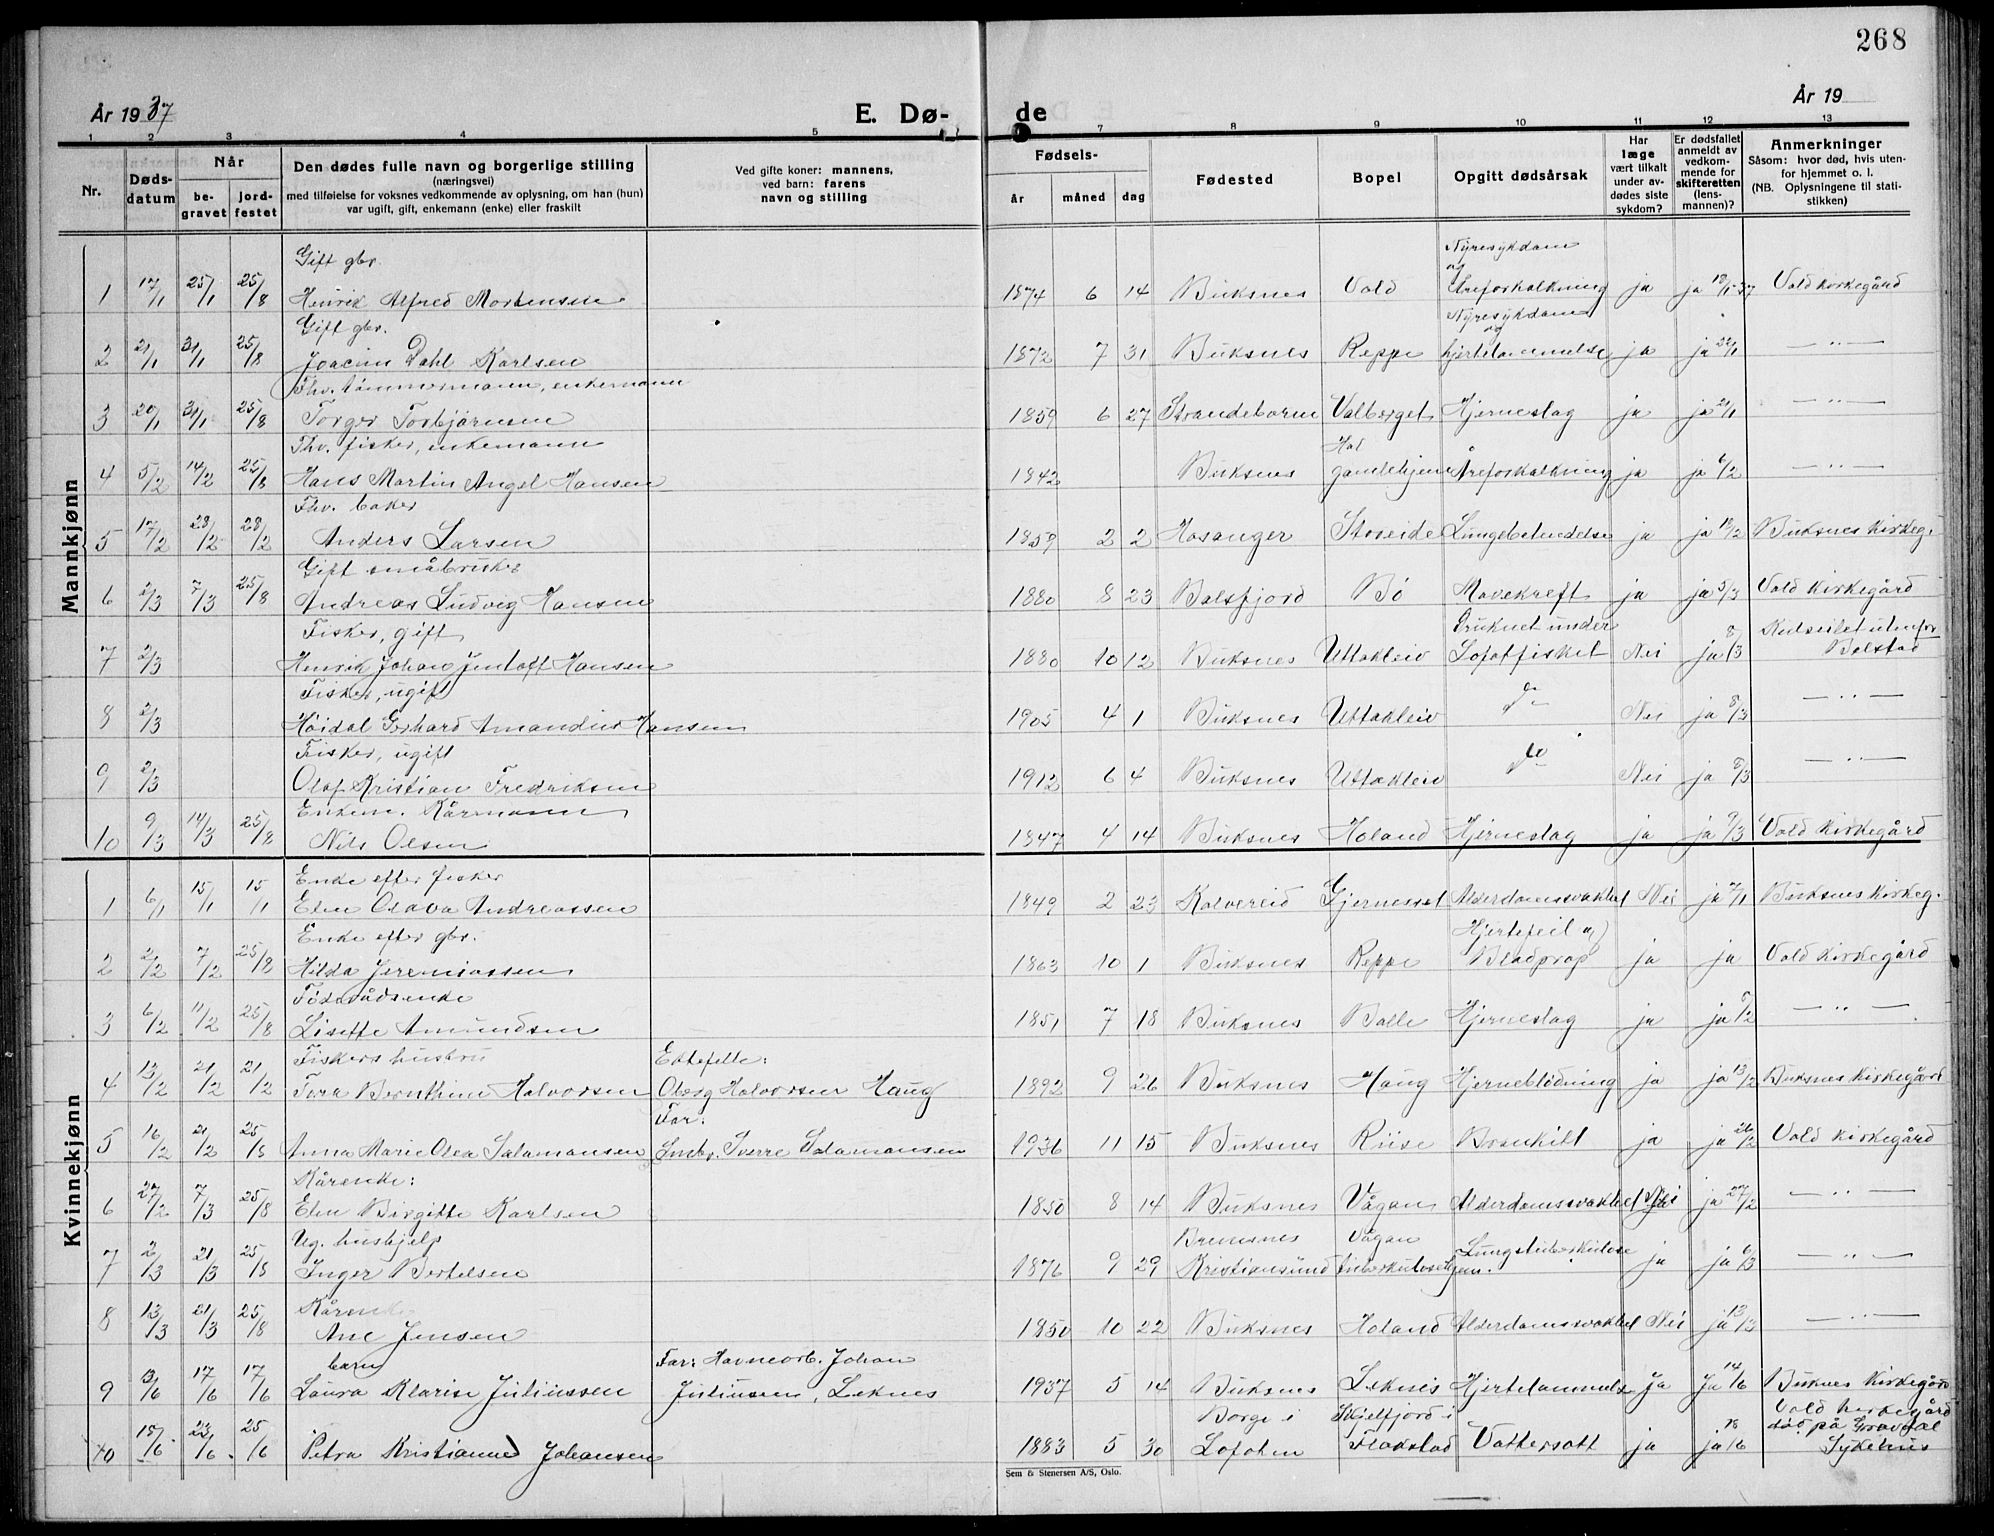 268
År 1937
E. Dø-
de
År 19
1 2 3 4 5 7 8 9 10 11 12 13
Nr.
Døds-
datum
Når
be-
gravet
jord-
festet
Den dødes fulle navn og borgerlige stilling
(næringsvei)
med tilføielse for voksnes vedkommende av oplysning, om han (hun)
var ugift, gift, enkemann (enke) eller fraskilt
Ved gifte koner: mannens,
ved barn: farens
navn og stilling
Fødsels-
år måned dag
Fødested
Bopel
Opgitt dødsårsak
Har
læge
vært tilkalt
under av-
dødes siste
sykdom?
Er dødsfallet
anmeldt av
vedkom-
mende for
skifteretten
(lens-
mannen)?
Anmerkninger
Såsom: hvor død, hvis uten-
for hjemmet o. l.
(NB. Oplysningene til stati-
stikken)
Mannkjønn
Gift gbr. Nyresykdom
og
1 17/1 25/1 25/8 Henrik Alfred Mortensen 1874 6 14 Buksnes Vold Åreforkalkning ja ja 18/1-37 Vold kirkegård
Gift gbr. Nyresykdom
og
2 21/1 31/1 25/8 Joacim Dahl Karlsen 1872 7 31 Buksnes Reppe hjertelammelse ja ja 22/1 — " —
Fhv. tömmermann, enkemann
3 20/1 31/1 25/8 Torger Torbjørnsen 1859 6 27 Strandebarm Valberget Hjerneslag ja ja 21/1 — " —
Fhv. fisker, enkemann Hol
4 5/2 14/2 25/8 Hans Martin Angel Hansen 1842 Buksnes gamlehjem Åreforkalkning ja ja 6/2 — " —
Fhv. baker
5 17/2 28/2 28/2 Anders Larsen 1859 2 2 Hosanger Storeide Lungebetendelse ja ja 18/2 Buksnes kirkeg.
Gift småbruker
6 2/3 7/3 25/8 Andreas Ludvig Hansen 1880 8 23 Balsfjord Bö Mavekreft ja ja 5/3 Vold kirkegård
Fisker, gift Druknet under Kulseilet utenfor
7 2/3 Henrik Johan Jentoft Hansen 1880 10 12 Buksnes Uttakleiv Lofotfisket Nei ja 8/3 Balstad
Fisker, ugift
8 2/3 Höidal Gerhard Amandus Hansen 1905 4 1 Buksnes Uttakleiv do Nei ja 8/3 — " —
Fisker, ugift
9 2/3 Olaf Kristian Fredriksen 1912 6 4 Buksnes Uttakleiv do Nei ja 8/3 — " —
Enkem. Kårmann
10 9/3 14/3 25/8 Nils Olsen 1847 4 14 Buksnes Holand Hjerneslag ja ja 9/3 Vold kirkegård
Kvinnekjønn
Enke efter fisker
1 6/1 15/1 15/1 Elen Olava Andreassen 1849 2 23 Kalvereid Gjernesset Alderdomssvakhet Nei ja 7/1 Buksnes kirkeg.
Enke efter gbr. Hjertefeil og
2 2/2 7/2 25/8 Hilda Jeremiassen 1863 10 1 Buksnes Reppe Blodprop ja ja Vold kirkegård
Föderådsenke
3 6/2 11/2 25/8 Lisette Amundsen 1851 7 18 Buksnes Balle Hjerneslag ja ja 8/2 — " —
Fiskers hustru Ektefelle:
4 13/2 21/2 21/2 Tora Bernthine Halvorsen Oberg Halvorsen Haug 1892 9 26 Buksnes Haug Hjerneblödning ja ja 13/2 Buksnes kirkegård
Far:
5 16/2 21/2 25/8 Anna Marie Olea Salamonsen Småbr. Sverre Salamonsen 1936 11 15 Buksnes Riise Bronkitt ja ja 26/2 Vold kirkegård
Kårenke:
6 27/2 7/3 25/8 Elen Birgitte Karlsen 1850 8 14 Buksnes Vågan Alderdomssvakhet Nei ja 27/2 — " —
Ug. hushjelp Bremsnes Vågan
7 2/3 21/3 25/8 Inger Bertelsen 1876 9 29 Kristiansund tuberkulosehjem. Lungetuberkulose ja ja 6/3 — " —
Kårenke
8 13/3 21/3 25/8 Ane Jensen 1850 10 22 Buksnes Holand Alderdomssvakhet Nei ja 13/3 — " —
barn Far: Havnearb. Johan
9 13/6 17/6 17/6 Laura Klarise Juliussen Juliussen, Leknes 1937 5 14 Buksnes Leknes Hjertelammelse Ja Ja 14/6 Buknes Kirkegård
Borge i Skjelfjord i Vold kirkegård
död på Gravdal
10 15/6 23/6 25/6 Petra Kristianne Johansen 1883 5 30 Lofoten Flakstad Vattersott ja ja 18/6 Sykehus
Sem & Stenersen A/S, Oslo.